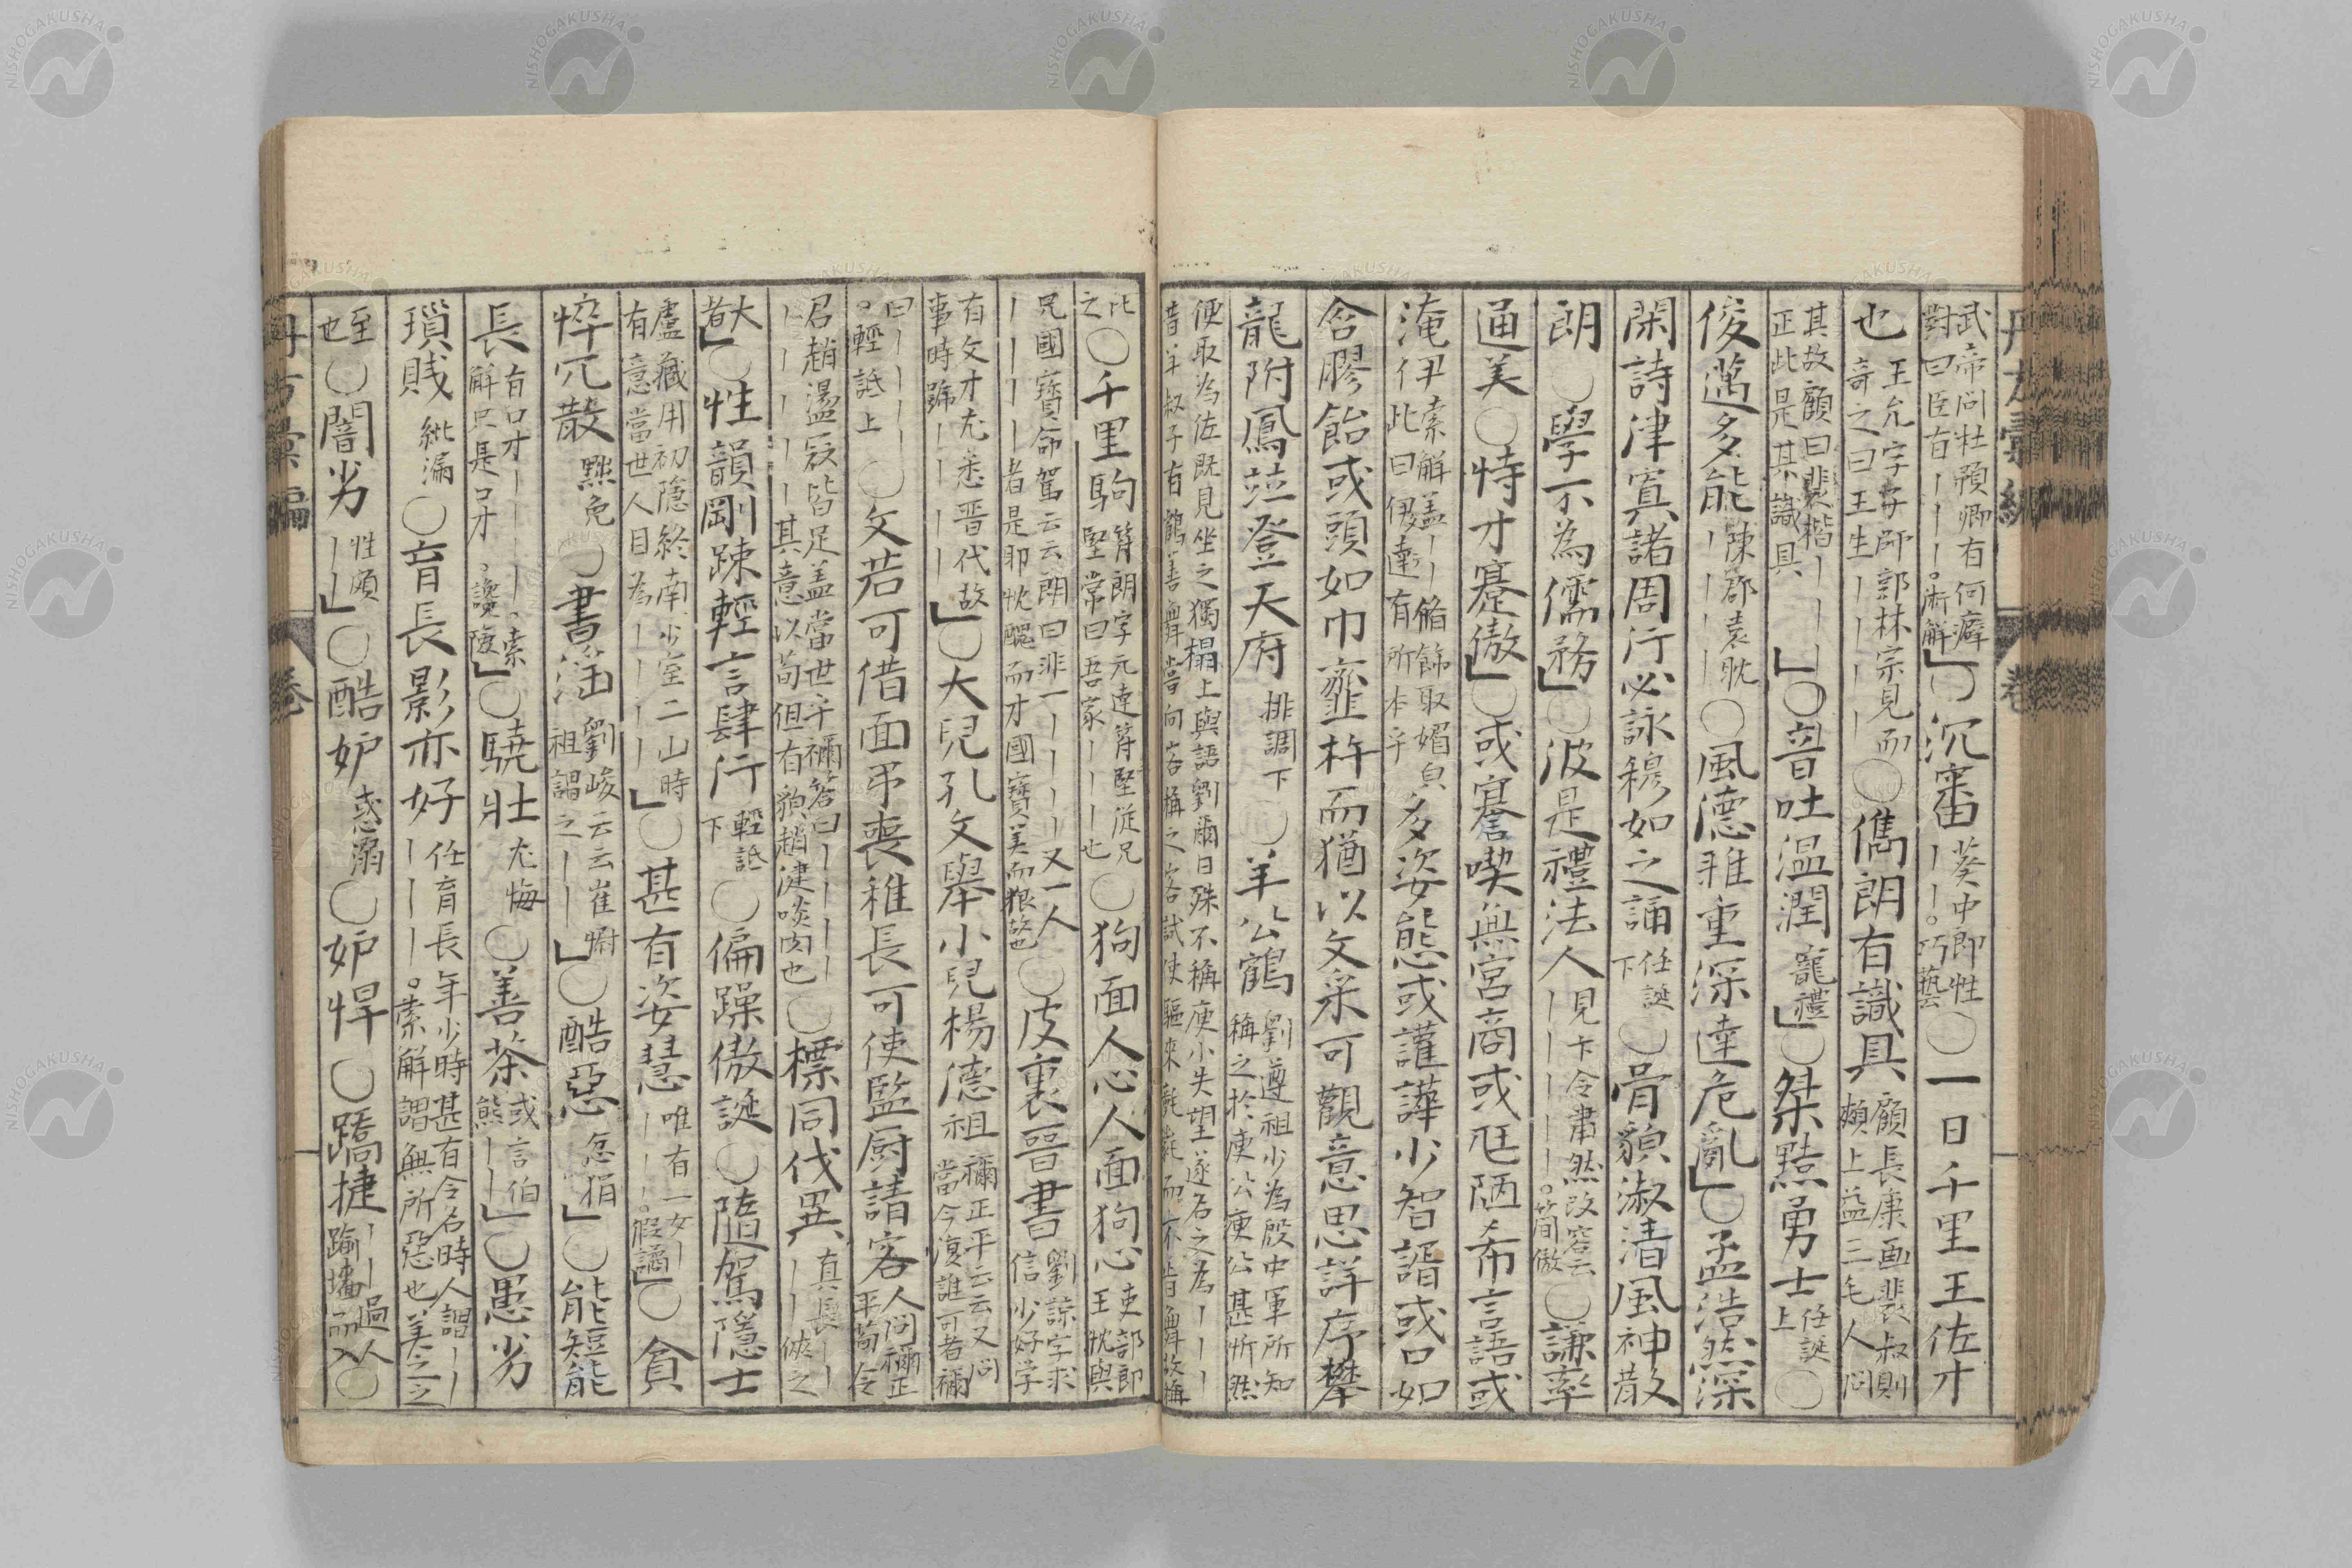 武帝問杜預卿有何癖
對曰臣有丨丨丨。術解」○沉審
蔡中郎性
丨丨。巧藝○一日千里王佐才
也
王允字子師郭林宗見而
奇之曰王生丨丨丨丨○儁朗有識具
顧長康画裴叔則
頰上益三毛人問
其故顧曰裴楷丨丨丨丨
正此是其識具」○音吐温潤寵禮」○桀黠勇士任誕上○
俊邁多能陳郡袁耽
丨丨丨丨○風德雅重深達危亂」○孟浩然深
閑詩津寘諸周行必詠穆如之誦任誕下○骨貌淑清風神散
朗○學不為儒務」○波是禮法人見卞令肅然改容云
丨丨丨丨丨。簡傲○謙率
通美○恃才蹇傲」○或謇喫無宮商或尫陋希言語或
淹伊索解盖丨丨脩飾取媚皃
此曰伊優違有所本乎多姿態或讙譁少智諝或口如
含膠飴或頭如巾虀杵而猶以文采可觀意思詳序攀
龍附鳳竝登天府排調下○羊公鶴
劉遵祖少為殷中軍所知
稱之於庾公庾公甚忻然
便取為佐既見坐之獨榻上與語劉爾日殊不稱庾小失望遂名之為丨丨丨
昔羊叔子有鶴善舞嘗向客稱之客試使驅來氃氋而不肯舞故稱
比
之○千里駒
苻朗字元達苻堅從兄
堅常曰吾家丨丨丨也○狗面人心人面狗心
吏部郎
王忱與
兄國寶命駕云云朗曰非一丨丨丨丨又一人
丨丨丨丨者是耶忱醜而才國寶美而狠故也○皮裏晉書
劉諒字求
信少好学
有文才尤悉晋代故
事時號丨丨丨丨」○大兒孔文舉小兒楊德祖
禰正平云云又问
當今復誰可者禰
曰丨丨丨丨丨
。輕詆上○文若可借面弔喪稚長可使監厨請客
人问禰正
平荀令
君趙盪寇皆足盖當世乎禰答曰丨丨丨丨
丨丨丨丨丨其意以荀但有貌趙健啖肉也○標同伐異
真長丨丨
丨丨俠之
大
者」○性韻剛疎輕言肆行輕詆下○偏躁傲誕○隨駕隱士
盧藏用初隐終南少室二山時
有意當世人目為丨丨丨丨」○甚有姿慧
唯有一女丨
丨丨丨。假譎」○貪
悴冗散黜免○書淫
劉峻云云崔慰
祖謂之丨丨」○酷惡忿狷」○能短能
長
有口才丨丨丨丨。索
解只是口才。讒險」○驍壯尤悔○善茶
或言伯
熊丨丨」○愚劣
瑣賎紕漏○育長影亦好
任育長年少時甚有令名時人謂丨丨
丨丨丨。索解謂無所惡也美之之
至
也○闇劣性頗
丨丨」○酷妒惑溺○妒悍○蹻捷
丨丨過人
踰墻而入○